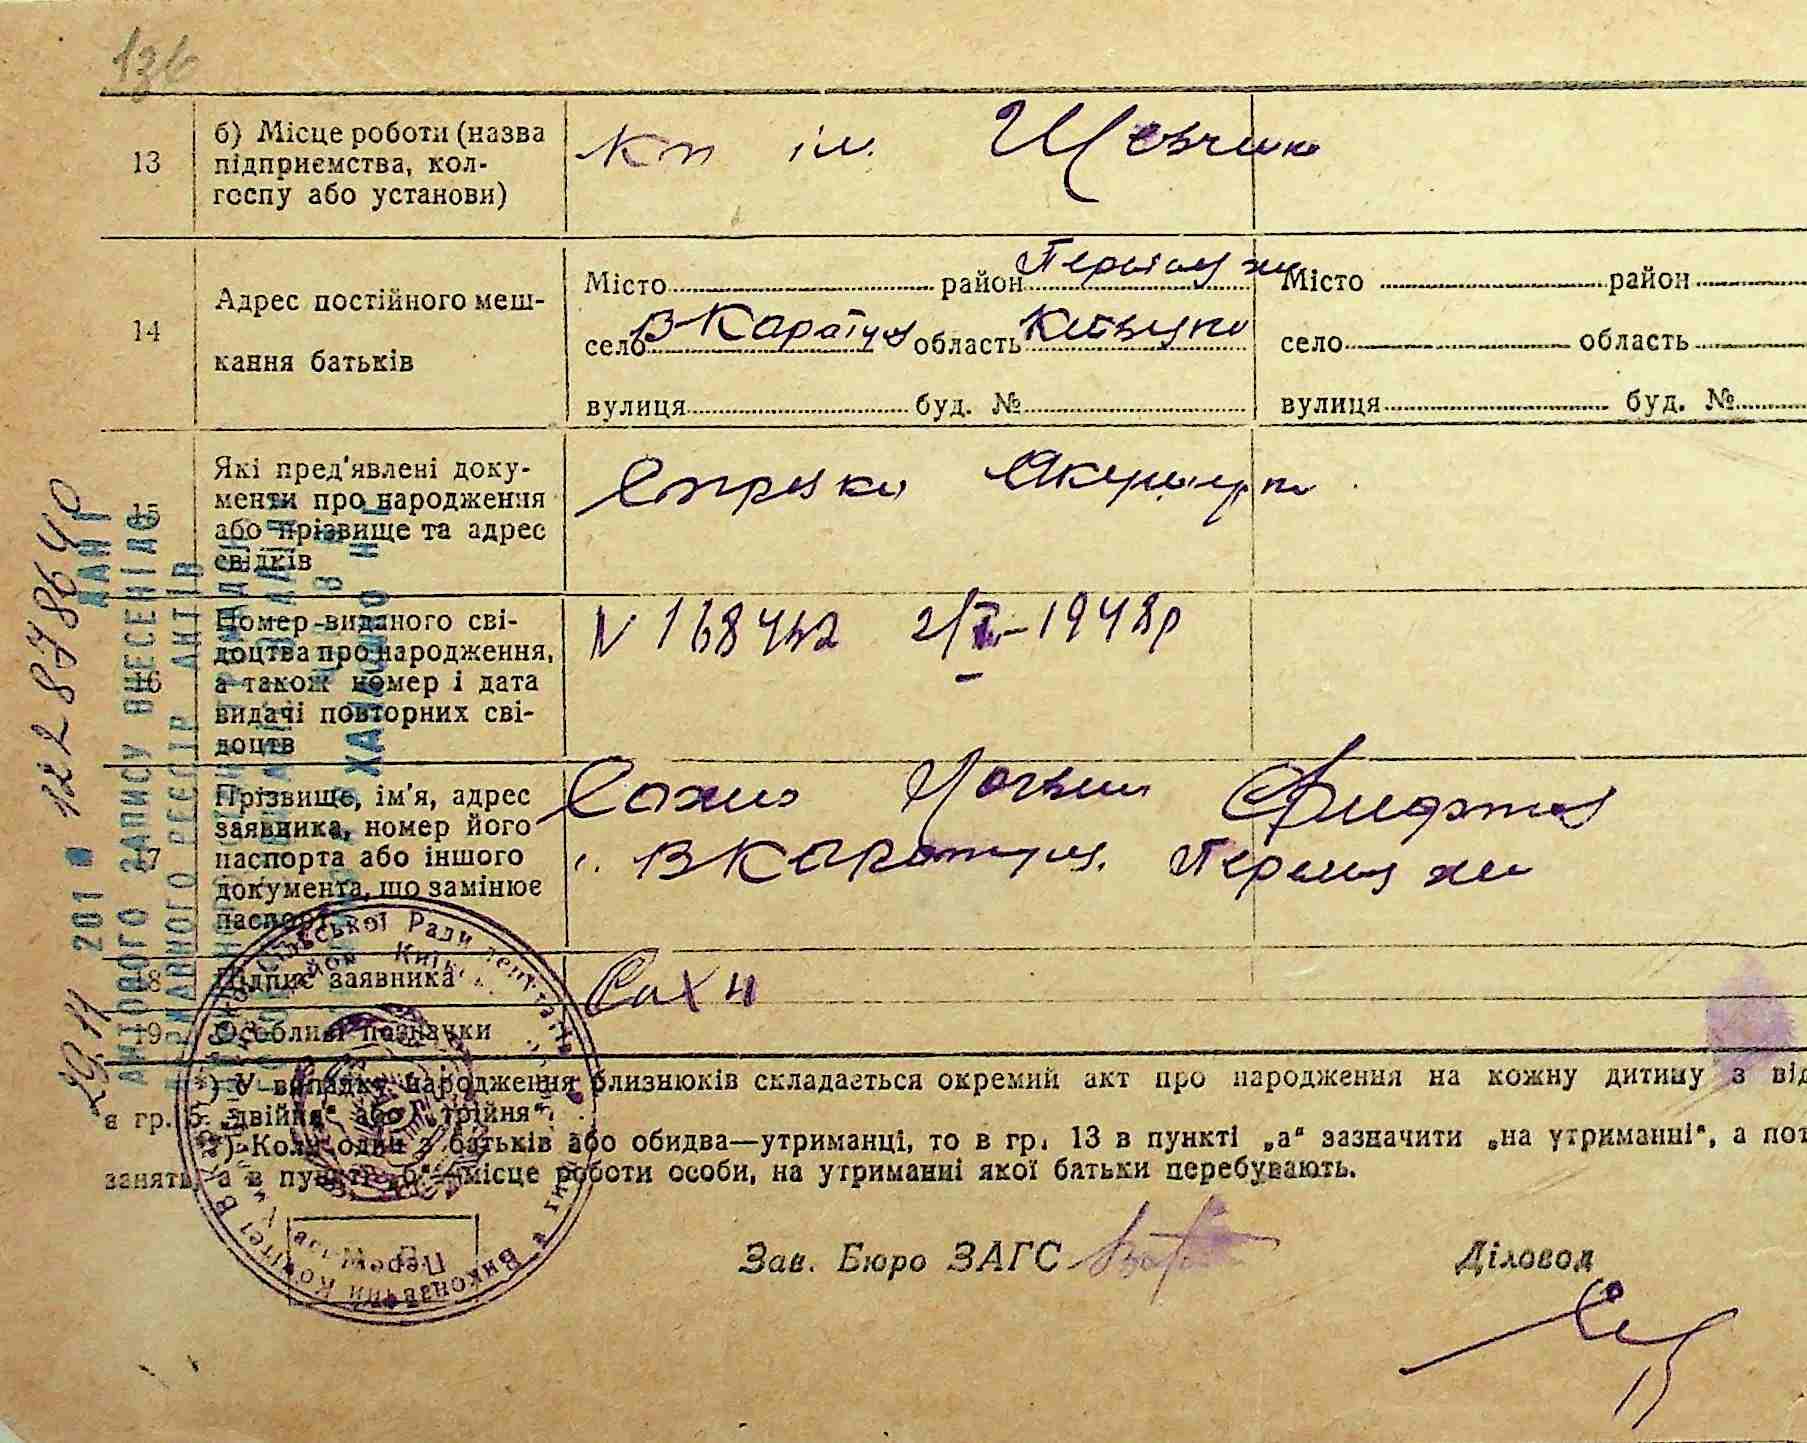 136
13
б) Місце роботи (назва
підприємства, кол-
госпу або установи)
Кп ім. Шевченк
14
Адрес постійного меш-
кання батьків
Місто район Переяслов хм
село В-Каратул область Київськ
вулиця буд. №
Місто район
село область
вулиця буд. №
15
Які пред'явлені доку-
менти про народження
або прізвище та адрес
свідків
Справка Акушерки
16
Номер виданого сві-
доцтва про народження,
а також номер і дата
видачі повторних сві-
доцтв
N 168442 2/ -1948р
17
Прізвище, ім'я, адрес
заявника, номер його
паспорта або іншого
документа, що замінює
паспорт
Сахно
с. В Каратул.
18
Підпис заявника
Сахн
19
Особливі позначки
) У випадку народження близнюків складається окремий акт про народження на кожну дитину з від
в гр. 5 „двійня“ або „трійня“.
) Коли один з батьків або обидва—утриманці, то в гр. 13 в пункті „а“ зазначити „на утриманні“, а пот
занять, а в пункті „б“—місце роботи особи, на утриманні якої батьки перебувають.
Зав. Бюро ЗАГС
Діловод
Виконавчий Комітет
Сільської Ради депутатів